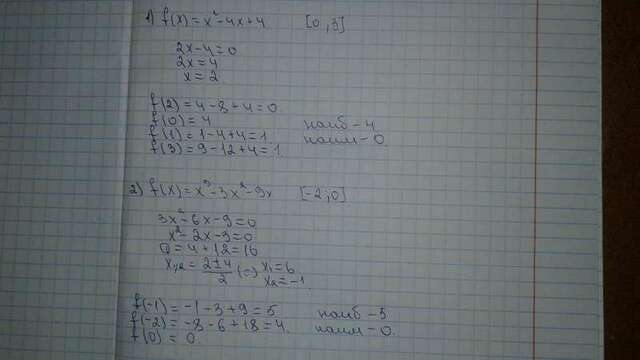 1) f(x) = x² - 4x + 4 [0, 3]
2x - 4 = 0
2x = 4
x = 2
f(2) = 4 - 8 + 4 = 0
f(0) = 4 наиб - 4
f(1) = 1 - 4 + 4 = 1 наим - 0
f(3) = 9 - 12 + 4 = 1
2) f(x) = x³ - 3x² - 9x [-2, 0]
3x² - 6x - 9 = 0
x² - 2x - 3 = 0
D = 4 + 12 = 16
x₁,₂ = (2 ± 4)/2 (=) x₁ = 6
x₂ = -1
f(-1) = -1 - 3 + 9 = 5 наиб - 5
f(-2) = -8 - 6 + 18 = 4 наим - 0
f(0) = 0